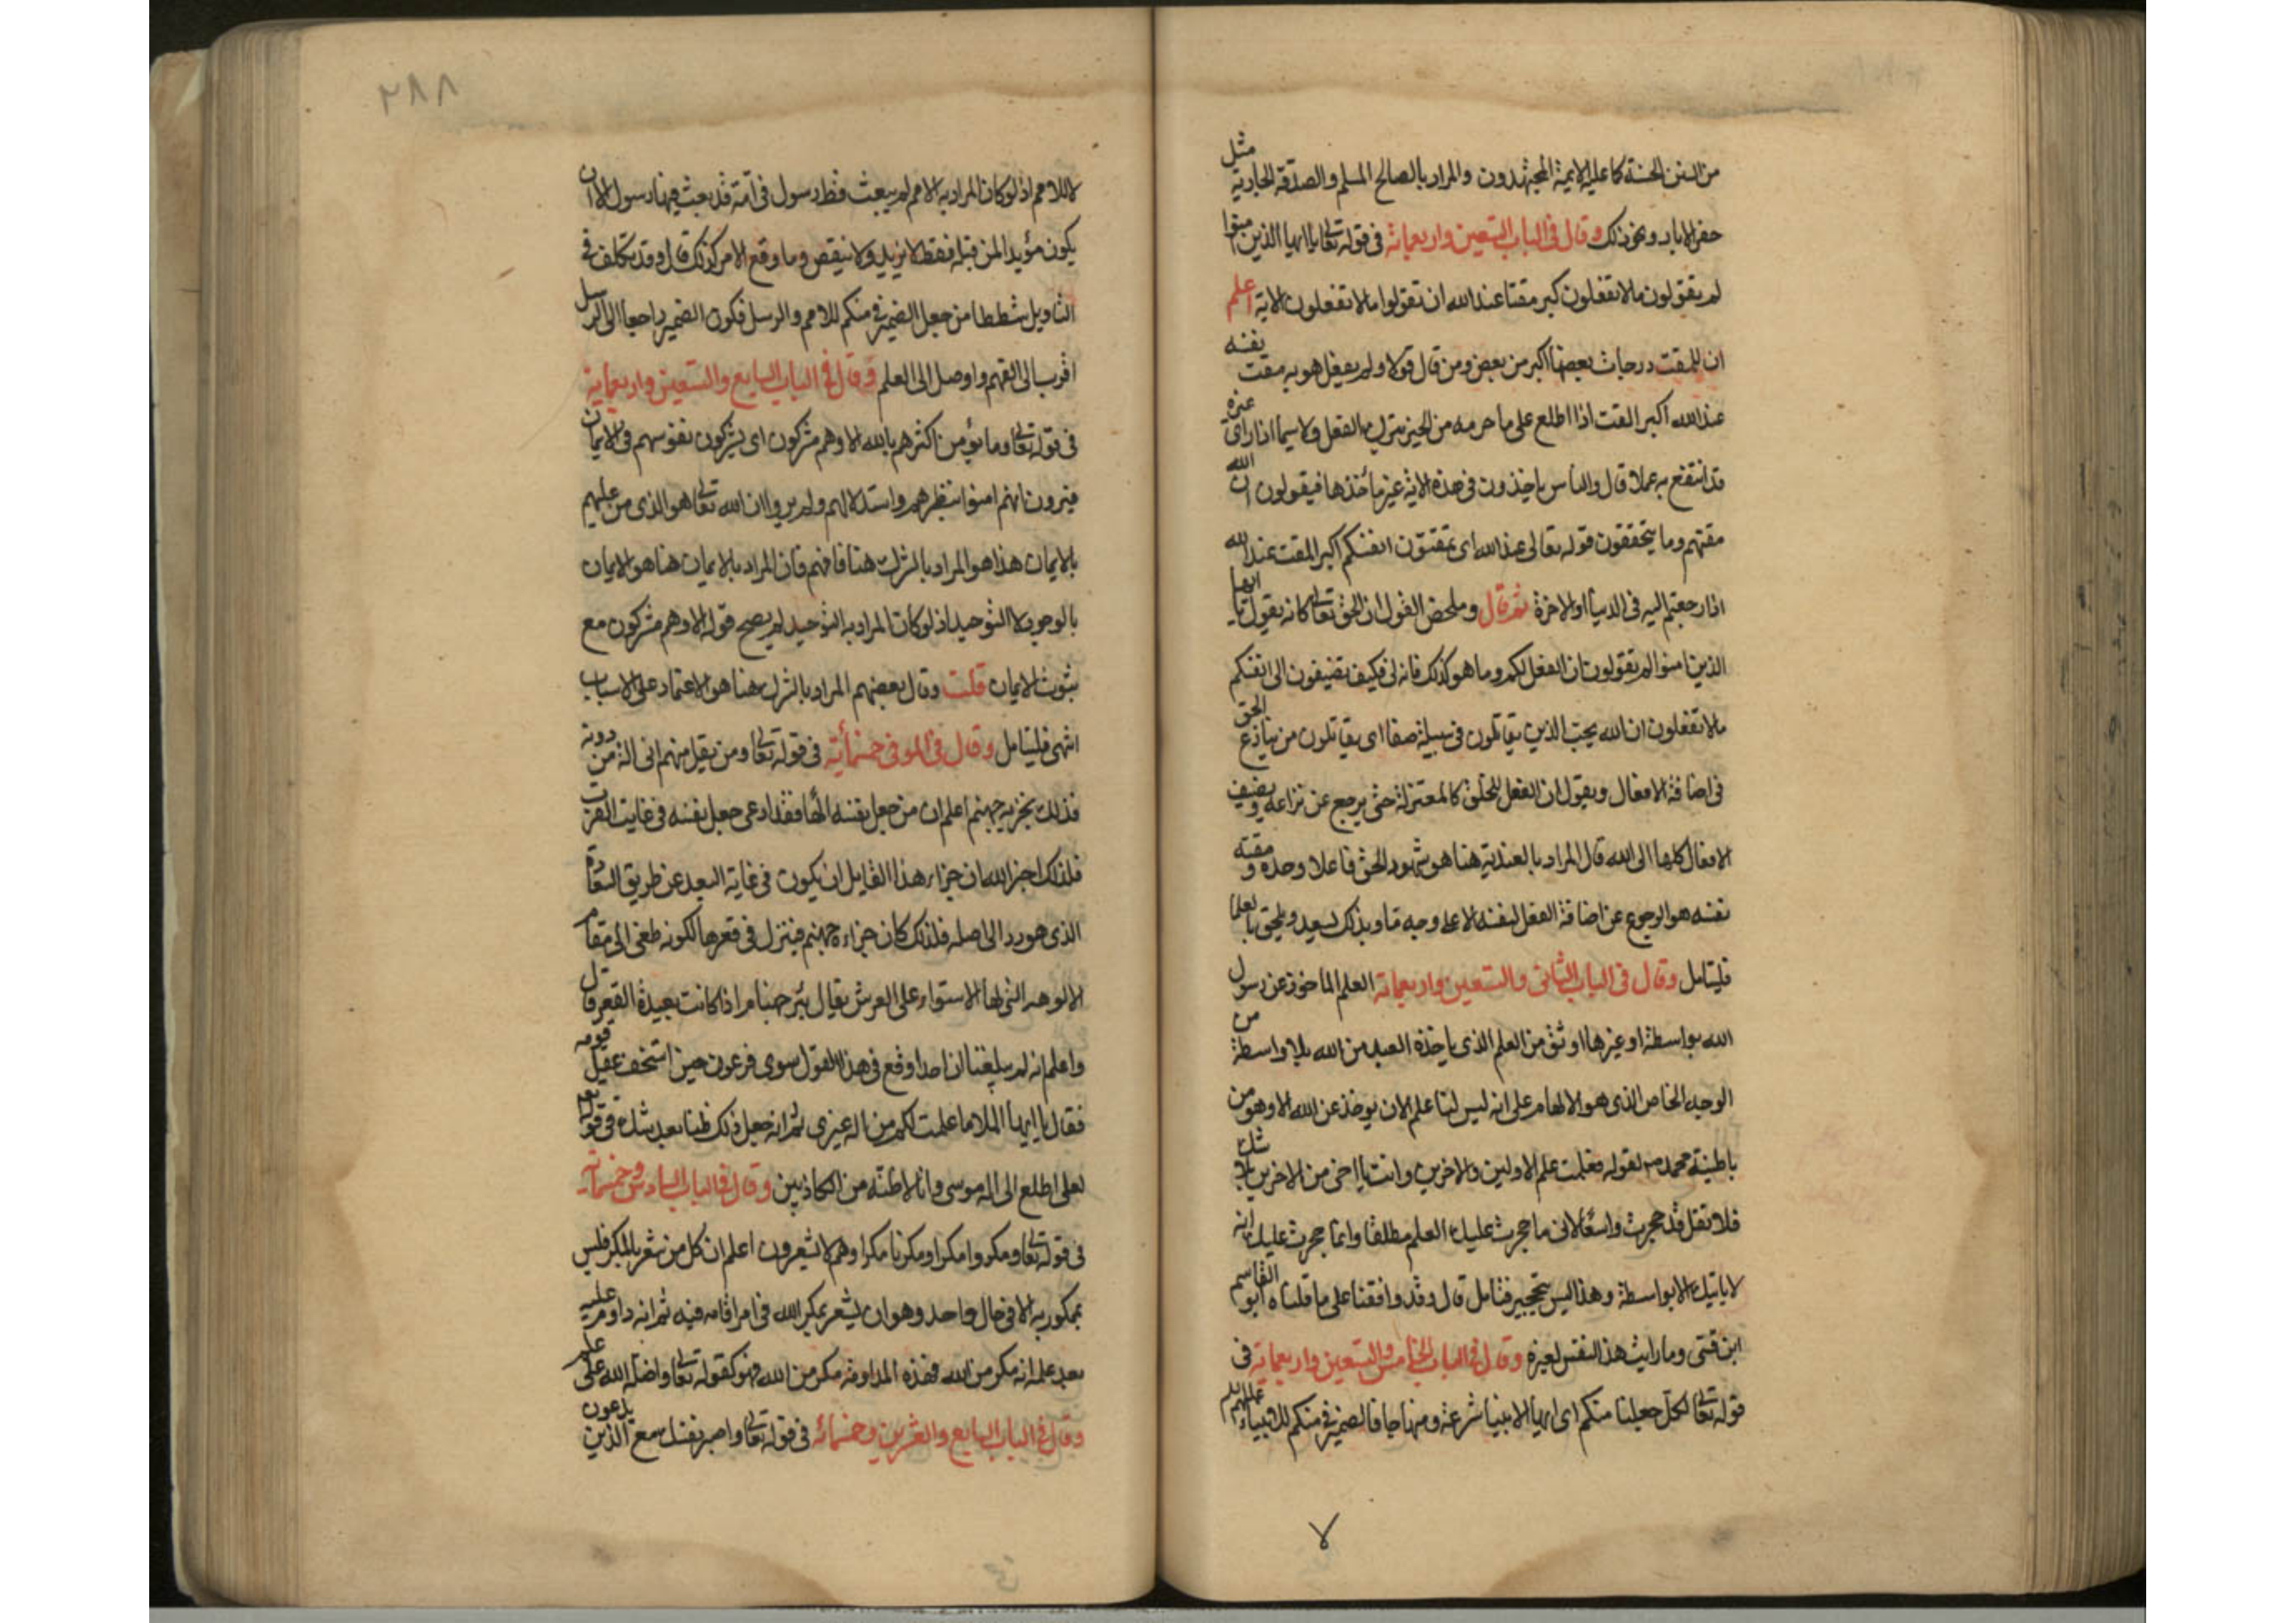 من السنن الحسنة كما عليه الايمة المجتهدون والمراد بالصالح المسلم والصدقة الجارية مثل
حفر الابار ونحو ذلك وقال في الباب التسعين واربعمائة في قوله تعالى ياايها الذين امنوا
لم تقولون مالا تفعلون كبر مقتا عند الله ان تقولوا مالا تفعلون الاية اعلم
ان للمقت درجات بعضها اكبر من بعض ومن قال قولا ولم يفعل هو به مقت نفسه
عند الله اكبر المقت اذا اطلع على ما حرمه من الخير بترك الفعل ولا سيما اذا راى غيره
قد انتفع به عملا قال والناس ياخذون في هذه الاية غير مأخذها فيقولون ان الله
مقتهم وما يتحققون قوله تعالى عند الله اى تمقتون انفسكم اكبر المقت عند الله
اذا رجعتم اليه في الدنيا او الاخرة ثم قال وملخص القول ان الحق تعالى كانه يقول يا ايها
الذين امنوا لم تقولون ان الفعل لكم وما هو كذلك فانه لى فكيف تضيفون الى انفسكم
مالا تفعلون ان الله يحب الذين يقاتلون في سبيله صفا اى يقاتلون من ينازع الحق
في اضافة الافعال ويقول ان الفعل للخلق كالمعتزلة حتى يرجع عن نزاعه ويضيف
الافعال كلها الى الله قال المراد بالعندية هنا هو شهود الحق فاعلا وحده ومقته
نفسه هو الرجوع عن اضافة الفعل لنفسه الا على وجه ما وبذلك يسعد ويلحق بالعلما
فليتامل وقال في الباب الثاني والتسعين واربعمائة العلم الماخوذ عن رسول
الله بواسطة او غيرها اوثق من العلم الذى ياخذه العبد من الله بلا واسطة من
الوجه الخاص الذى هو الالهام على انه ليس لنا علم الان يوخذ عن الله الا وهو من
باطنية محمد صم لقوله فعلمت علم الاولين والاخرين وانت يا اخى من الاخرين بلا شك
فلا تقل قد حجرت واسعا لانى ما حجرت عليك العلم مطلقا وانما حجرت عليك انه
لا ياتيك الا بواسطة وهذا ليس بتحجير فتامل قال وقد وافقنا على ما قلناه ابو القاسم
ابن قسى وما رايت هذا النفس لغيره وقال في الباب الخامس والتسعين واربعماية في
قوله تعالى لكل جعلنا منكم اى ايها الانبيا شرعة ومنهاجا فالضمير في منكم للانبياء عليهم السلم
لا
٢٨٨
لا للامم اذ لو كان المراد به الامم لم يبعث قط رسول في امة قد بعث فيها رسول الا ان
يكون مؤيدا لمن قبله فقط لا يزيد ولا ينقص وما وقع الامر كذلك قال وقد تكلف في
التاويل شططا من جعل الضمير في منكم للامم والرسل فكون الضمير راجعا الى الرسل
اقرب الى الفهم واوصل الى العلم وقال في الباب السابع والتسعين واربعماية
في قوله تعالى وما يؤمن اكثرهم بالله الا وهم مشركون اى يشركون نفوسهم في الايمان
فيرون انهم امنوا بنظرهم واستدلالهم ولم يروا ان الله تعالى هو الذى من عليهم
بالايمان هذا هو المراد بالشرك هنا فافهم فان المراد بالايمان هنا هو الايمان
بالوجود لا التوحيد اذ لو كان المراد به التوحيد لم يصح قوله الا وهم مشركون مع
ثبوت الايمان قلت وقال بعضهم المراد بالشرك هنا هو الاعتماد على الاسباب
انتهى فليتامل وقال في الموفى خمسمأية في قوله تعالى ومن يقل منهم انى اله من دونه
فذلك نجزيه جهنم اعلم ان من جعل نفسه الها فقد ادعى جعل نفسه في غايت القرب
فلذلك اخبر الله ان جزاء هذا القايل ان يكون في غاية البعد عن طريق السعادة
الذى هو رد الى اصله فلذلك كان جزاءه جهنم فينزل في قعرها لكونه طغى الى مقام
الالوهه التى لها الاستواء على العرش يقال بئر جهنام اذا كانت بعيدة القعر قال
واعلم انه لم يبلغنا ان احدا وقع في هذا القول سوى فرعون حين استخف عقل قومه
فقال يا ايها الملا ما علمت لكم من اله غيرى ثم انه جعل ذلك ظنا بعد شك في قوله
لعلى اطلع الى اله موسى وانى لاظنه من الكاذبين وقال في الباب السادس وخمسمائة
في قوله تعالى ومكروا مكرا ومكرنا مكرا وهم لا يشعرون اعلم ان كل من شعر بالمكر فليس
بممكور به الا في حال واحد وهو ان يشعر بمكر الله في امر اقامه فيه ثم انه داوم عليه
بعد علمه انه مكر من الله فهذه المداومة مكر من الله فهو كقوله تعالى واضله الله على علم
وقال في الباب السابع والعشرين وخمسمائه في قوله تعالى واصبر نفسك مع الذين يدعون